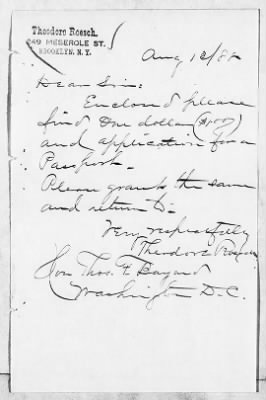 Theodore Roesch.
249 MESEROLE ST.
BROOKLYN, N.Y.
Aug 18/88
Dear Sir:
Enclosed please
find One dollar ($1.00)
and application for a
Passport.
Please grant the same
and return to.
Very respectfully
Theodore Roesch
Hon Thos. F. Bayard
Washington D.C.